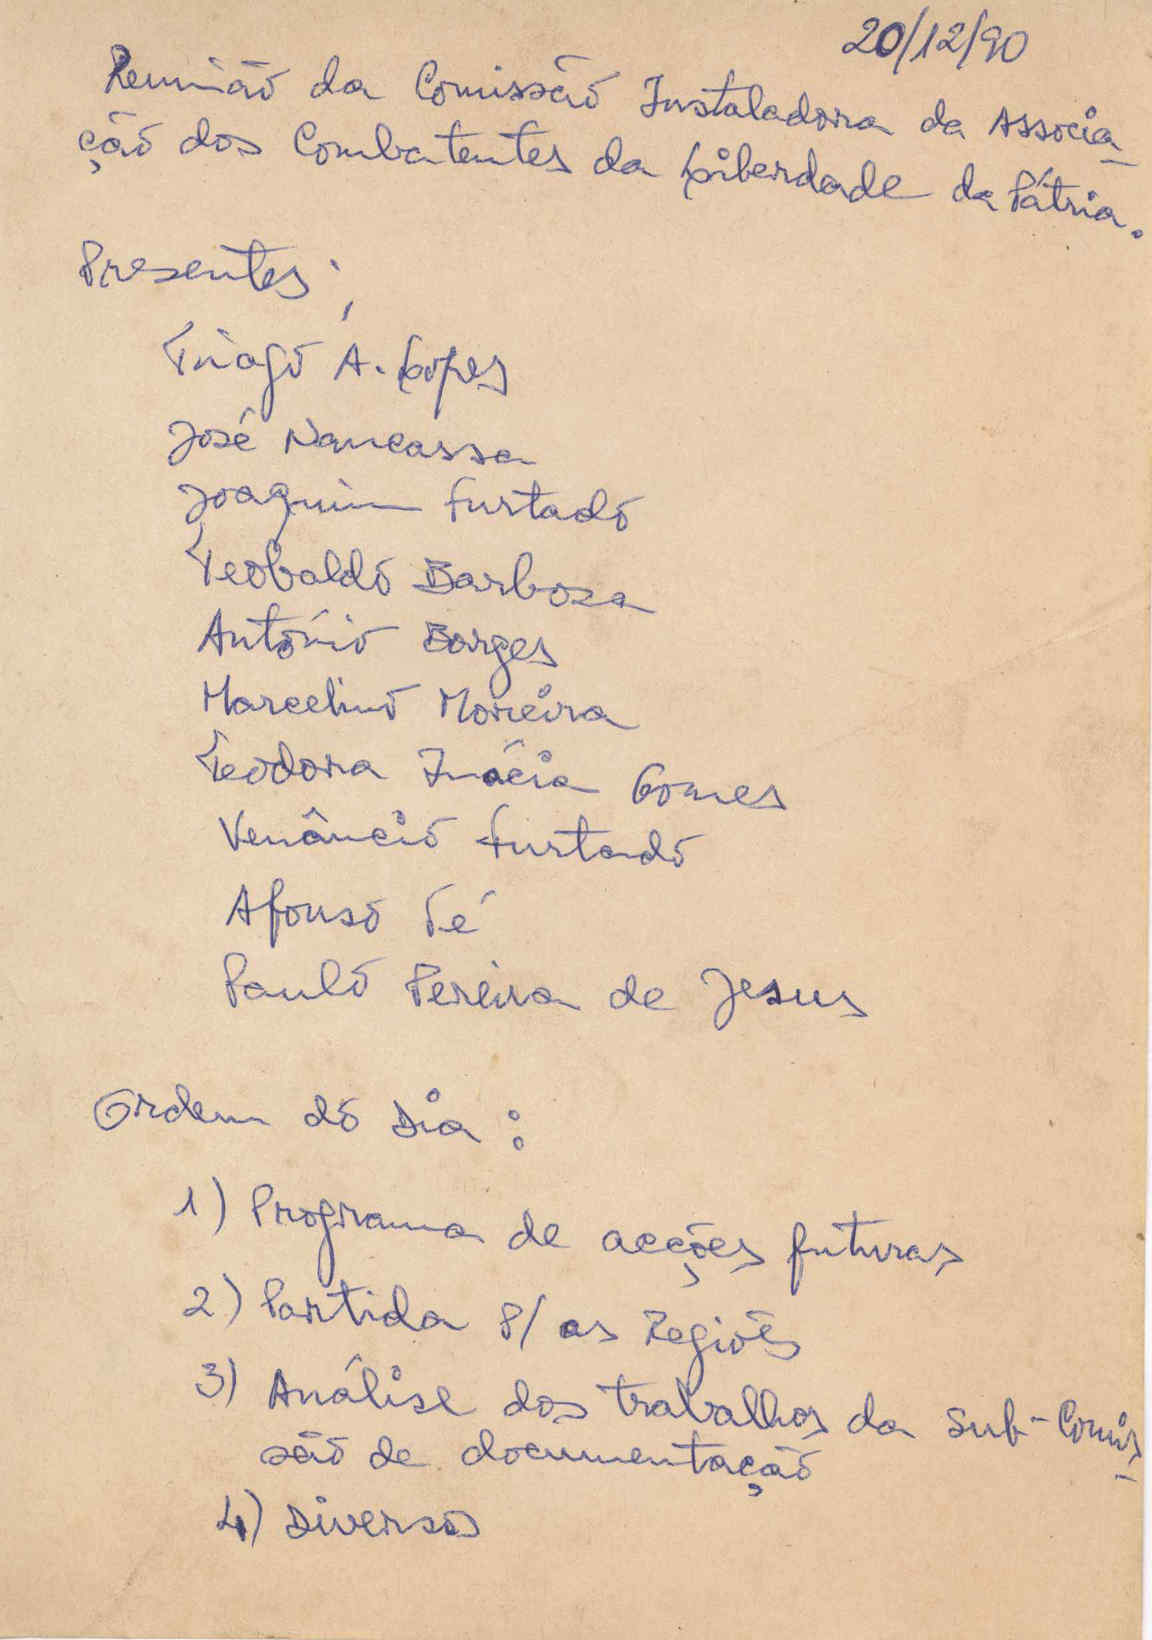 20/12/90
Reunião da Comissão Instaladora da Associa-
ção dos Combatentes da Liberdade da Pátria.
Presentes;
Tiago A. Lopes
José Nancassa
Joaquim Furtado
Teobaldo Barbosa
António Borges
Marcelino Moreira
Teodora Inácia Gomes
Venâncio Furtado
Afonso Té
Paulo Pereira de Jesus
Ordem do Dia:
1) Programa de acções futuras
2) Partida P/ as Regiões
3) Análise dos trabalhos da Sub-Comis-
são de documentação
4) Diversos